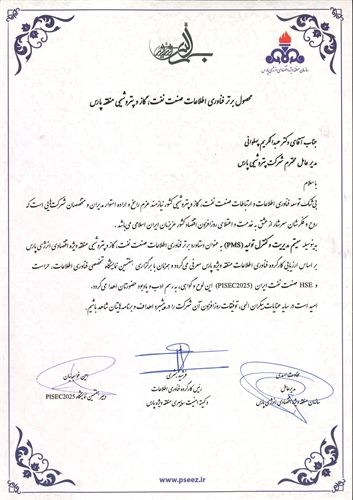 سازمان منطقه ویژه اقتصادی انرژی پارس
محصول برتر فناوری اطلاعات صنعت نفت، گاز و پتروشیمی منطقه پارس
جناب آقای دکتر عبدالکریم پهلوانی
مدیرعامل محترم شرکت پتروشیمی پارس
با سلام
بی‌شک، توسعه فناوری اطلاعات و ارتباطات صنعت نفت، گاز و پتروشیمی کشور نیازمند عزم راسخ و اراده استوار مدیران و متخصصان شرکت‌هایی است که
روح و تفکرشان سرشار از عشق به خدمت و اعتلای روزافزون اقتصاد کشور عزیزمان ایران اسلامی می‌باشد.
بدینوسیله سیستم مدیریت و کنترل تولید (PMS) به عنوان دستاورد برتر فناوری اطلاعات صنعت نفت، گاز و پتروشیمی منطقه ویژه اقتصادی انرژی پارس
بر اساس ارزیابی کارگروه فناوری اطلاعات منطقه ویژه پارس معرفی می‌گردد و همزمان با برگزاری هفتمین نمایشگاه تخصصی فناوری اطلاعات، حراست
و HSE صنعت نفت ایران (PISEC2025) این لوح و گواهی، به رسم ادب و یادبود حضورتان اهدا می‌گردد.
امید است در سایه عنایات بیکران الهی، توفیقات روزافزون آن شرکت را در پیشبرد اهداف و برنامه‌هایتان شاهد باشیم.
سخاوت اسدی
مدیرعامل
سازمان منطقه ویژه اقتصادی انرژی پارس
رئیس کارگروه فناوری اطلاعات
و کمیته امنیت سایبری منطقه ویژه پارس
دبیر هفتمین نمایشگاه PISEC2025
www.pseez.ir